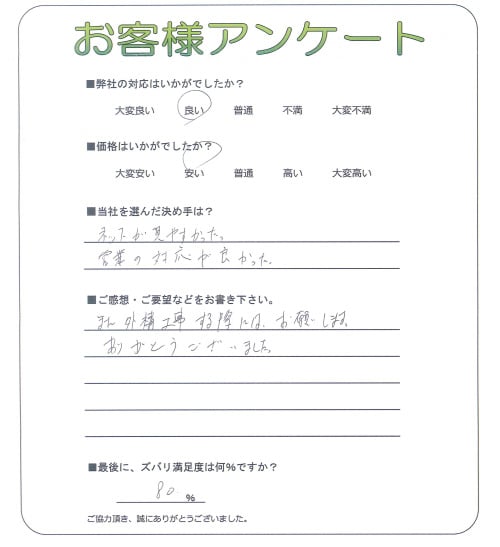 お客様アンケート
■弊社の対応はいかがでしたか？
大変良い 良い 普通 不満 大変不満
■価格はいかがでしたか？
大変安い 安い 普通 高い 大変高い
■当社を選んだ決め手は？
ネットが見やすかった。
営業の対応が良かった。
■ご感想・ご要望などをお書き下さい。
また外構工事する際には、お願いします。
ありがとうございました。
■最後に、ズバリ満足度は何％ですか？
80 ％
ご協力頂き、誠にありがとうございました。